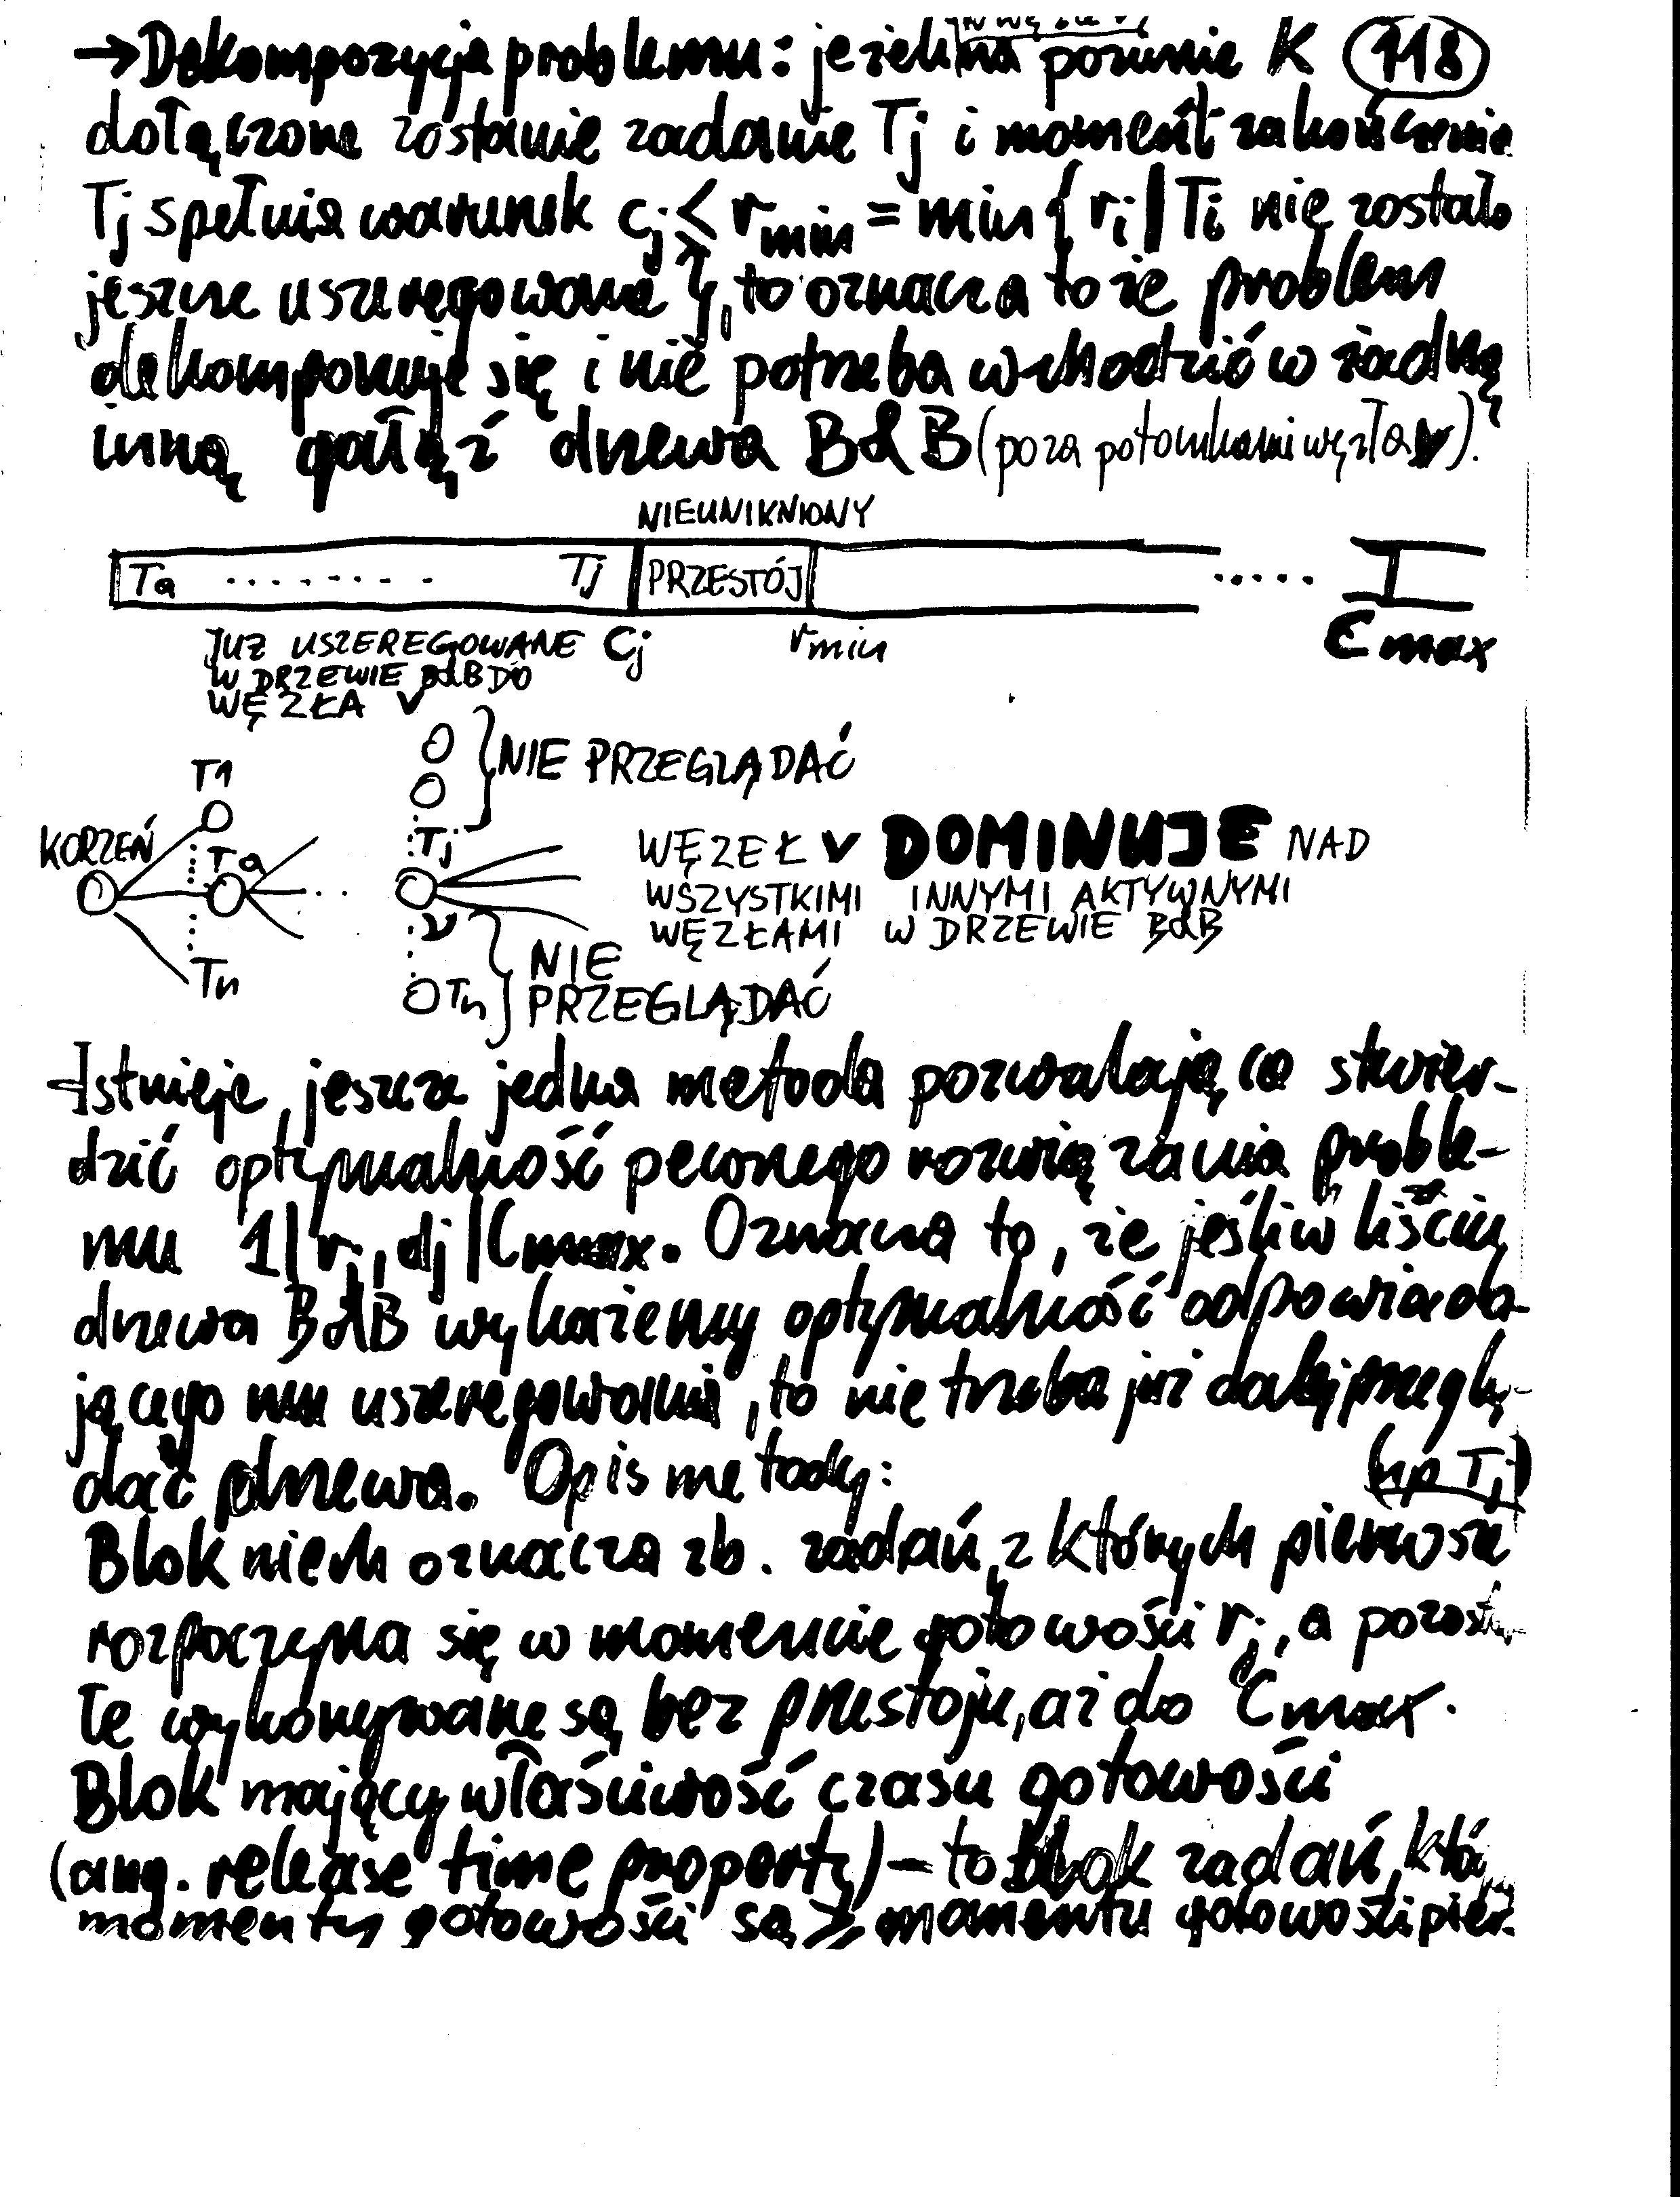 → Dekompozycja problemu: jeżeli w węźle v, na poziomie K (118)
dołączone zostanie zadanie Tj i moment zakończenia
Tj spełnia warunek cj ≤ rmin = min { ri | Ti nie zostało
jeszcze uszeregowane }, to oznacza to że problem
dekomponuje się i nie potrzeba wchodzić w żadną
inną gałąź drzewa B&B (poza potomkami węzła v).
NIEUNIKNIONY
Ta ........ Tj PRZESTÓJ ..... 
JUŻ USZEREGOWANE Cj rmin Cmax
W DRZEWIE B&B DO
WĘZŁA V
} NIE PRZEGLĄDAĆ
T1
KORZEŃ Ta ... Tj WĘZEŁ v DOMINUJE NAD
WSZYSTKIMI INNYMI AKTYWNYMI
v WĘZŁAMI W DRZEWIE B&B
Tn Tn } NIE
PRZEGLĄDAĆ
- Istnieje jeszcze jedna metoda pozwalająca stwier-
dzić optymalność pewnego rozwiązania proble-
mu 1|rj, dj|Cmax. Oznacza to, że jeśli w liściu
drzewa B&B wykażemy optymalność odpowiada-
jącego mu uszeregowania, to nie trzeba już dalej przeglą-
dać drzewa. Opis metody: (np Tj)
Blok niech oznacza zb. zadań, z których pierwsze
rozpoczyna się w momencie gotowości rj, a pozosta-
łe wykonywane są bez przestoju, aż do Cmax.
Blok mający właściwość czasu gotowości
(ang. release time property) – to blok zadań,
momenty gotowości są ≥ momentu gotowości pier-